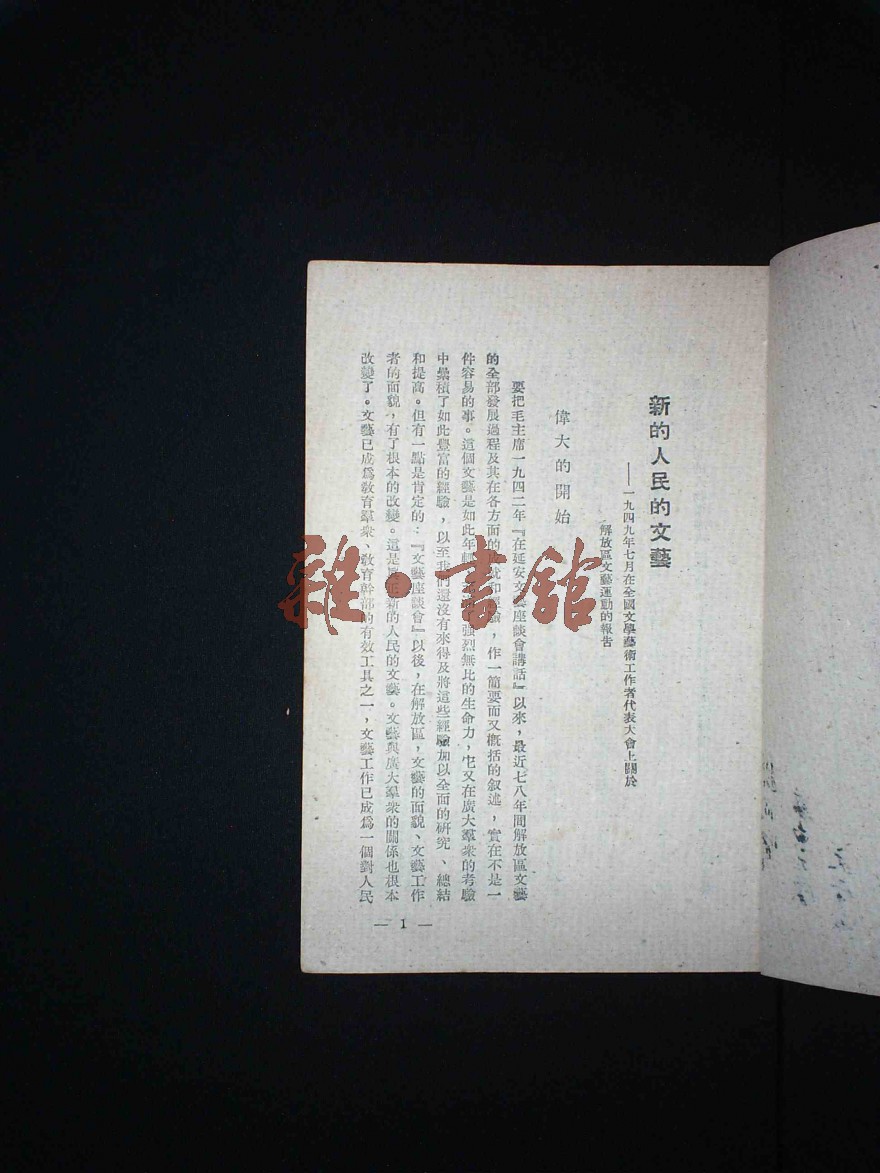 新的人民的文藝
——一九四九年七月在全國文學藝術工作者代表大會上關於
解放區文藝運動的報告
偉大的開始
要把毛主席一九四二年『在延安文藝座談會講話』以來，最近七八年間解放區文藝
的全部發展過程及其在各方面的成就和經驗，作一簡要而又概括的叙述，實在不是一
件容易的事。這個文藝是如此年輕，強烈無比的生命力，它又在廣大羣衆的考驗
中彙積了如此豐富的經驗，以至我們還沒有來得及將這些經驗加以全面的研究、總結
和提高。但有一點是肯定的：『文藝座談會』以後，在解放區，文藝的面貌、文藝工作
者的面貌，有了根本的改變。這是眞正新的人民的文藝。文藝與廣大羣衆的關係也根本
改變了。文藝已成爲敎育羣衆、敎育幹部的有效工具之一，文藝工作已成爲一個對人民
— 1 —
雜·書館